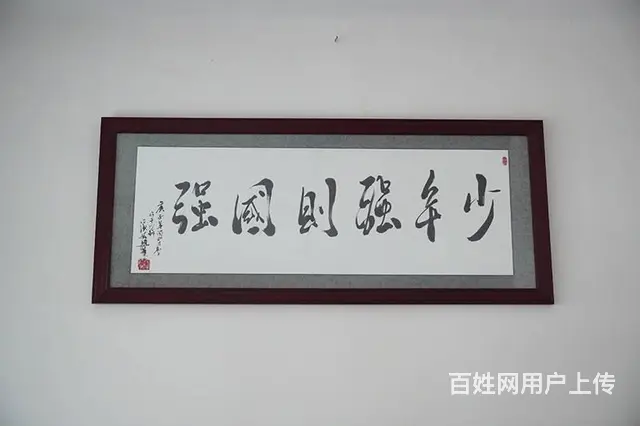 少年强则國强
百姓网用户上传